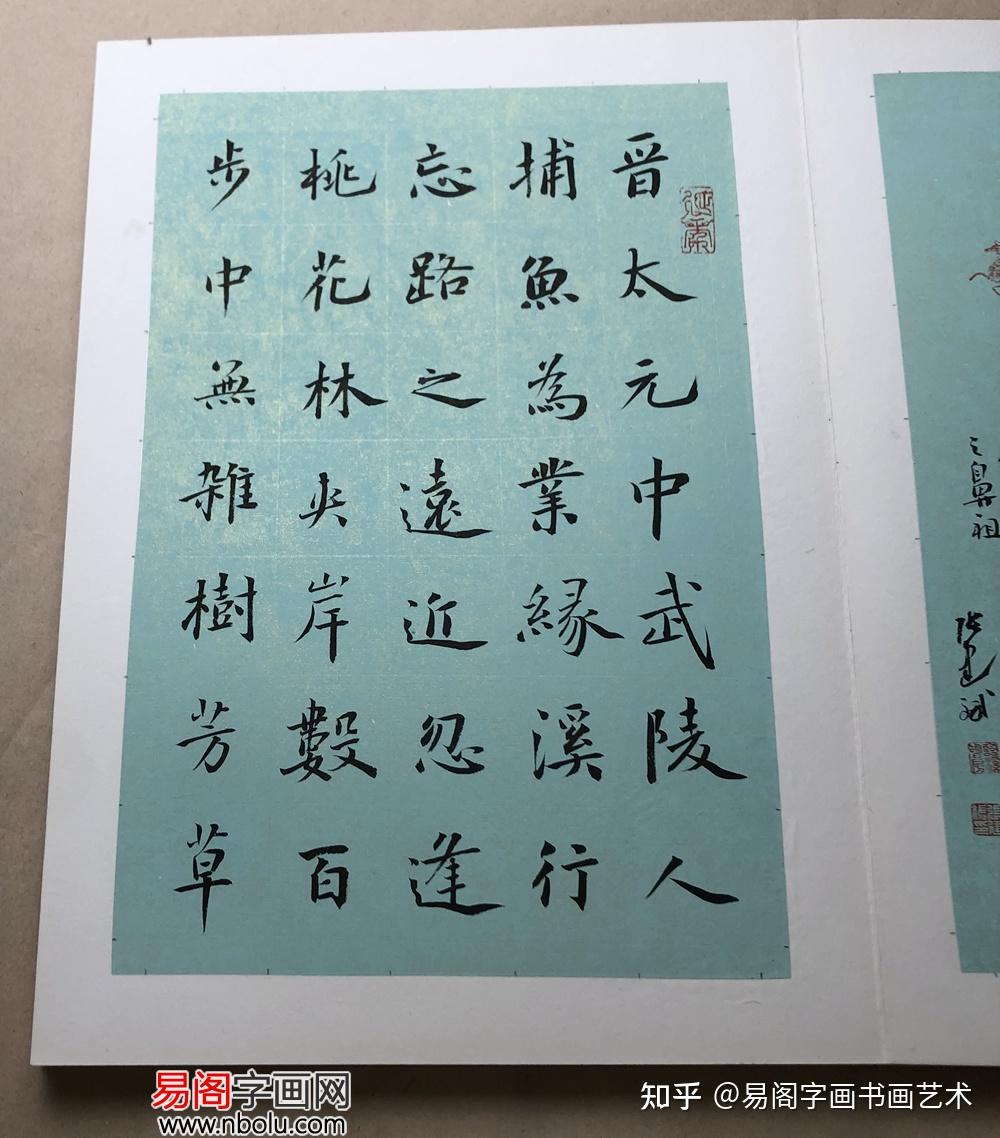 晋太元中武陵人
捕魚為業緣溪行
忘路之遠近忽逢
桃花林夹岸數百
步中無雜樹芳草
之鼻祖
易阁字画网
www.nbolu.com
知乎 @易阁字画书画艺术